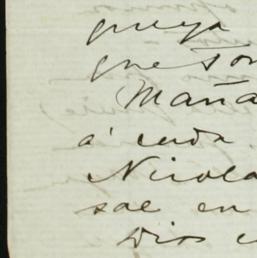 queja
que son
Maña
á cada
Nicola
sale en
Dios e